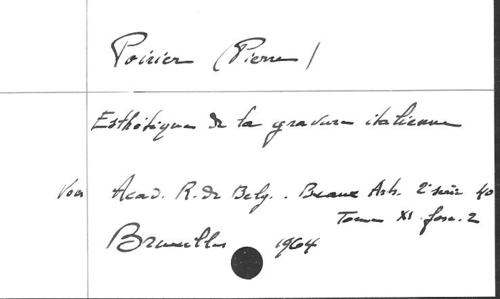 Poirier (Pierre)
Esthétique de la gravure italienne
Voir Acad. R. de Belg. . Beaux Arts. 2e série 40
Tome XI. fasc. 2
Bruxelles 1964